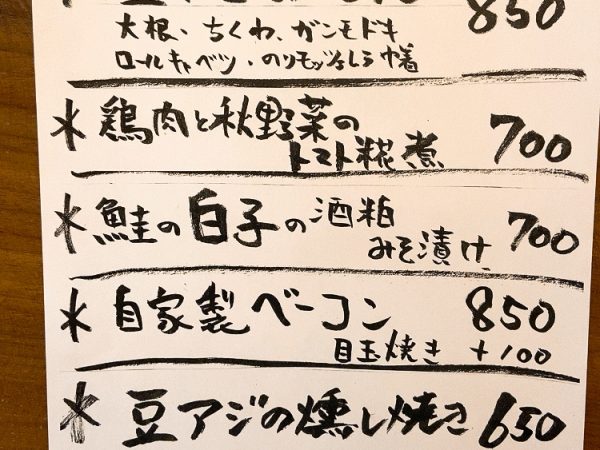 850
大根、ちくわ、ガンモドキ
ロールキャベツ、のりモッツァレラ巾着
* 鶏肉と秋野菜の
トマト糀煮 700
* 鮭の白子の酒粕
みそ漬け 700
* 自家製ベーコン 850
目玉焼き +100
* 豆アジの燻し焼き 650